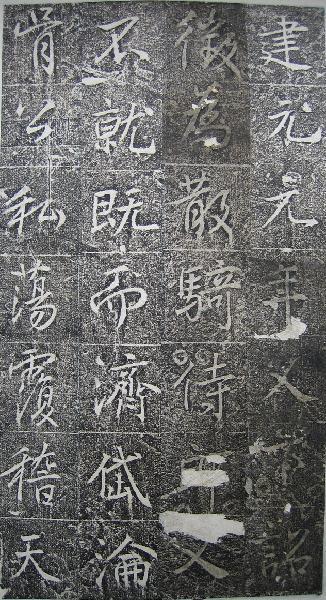 建元元年又詔
徵為散騎待又
不就既而濟岱淪
胥公私蕩覆稽天